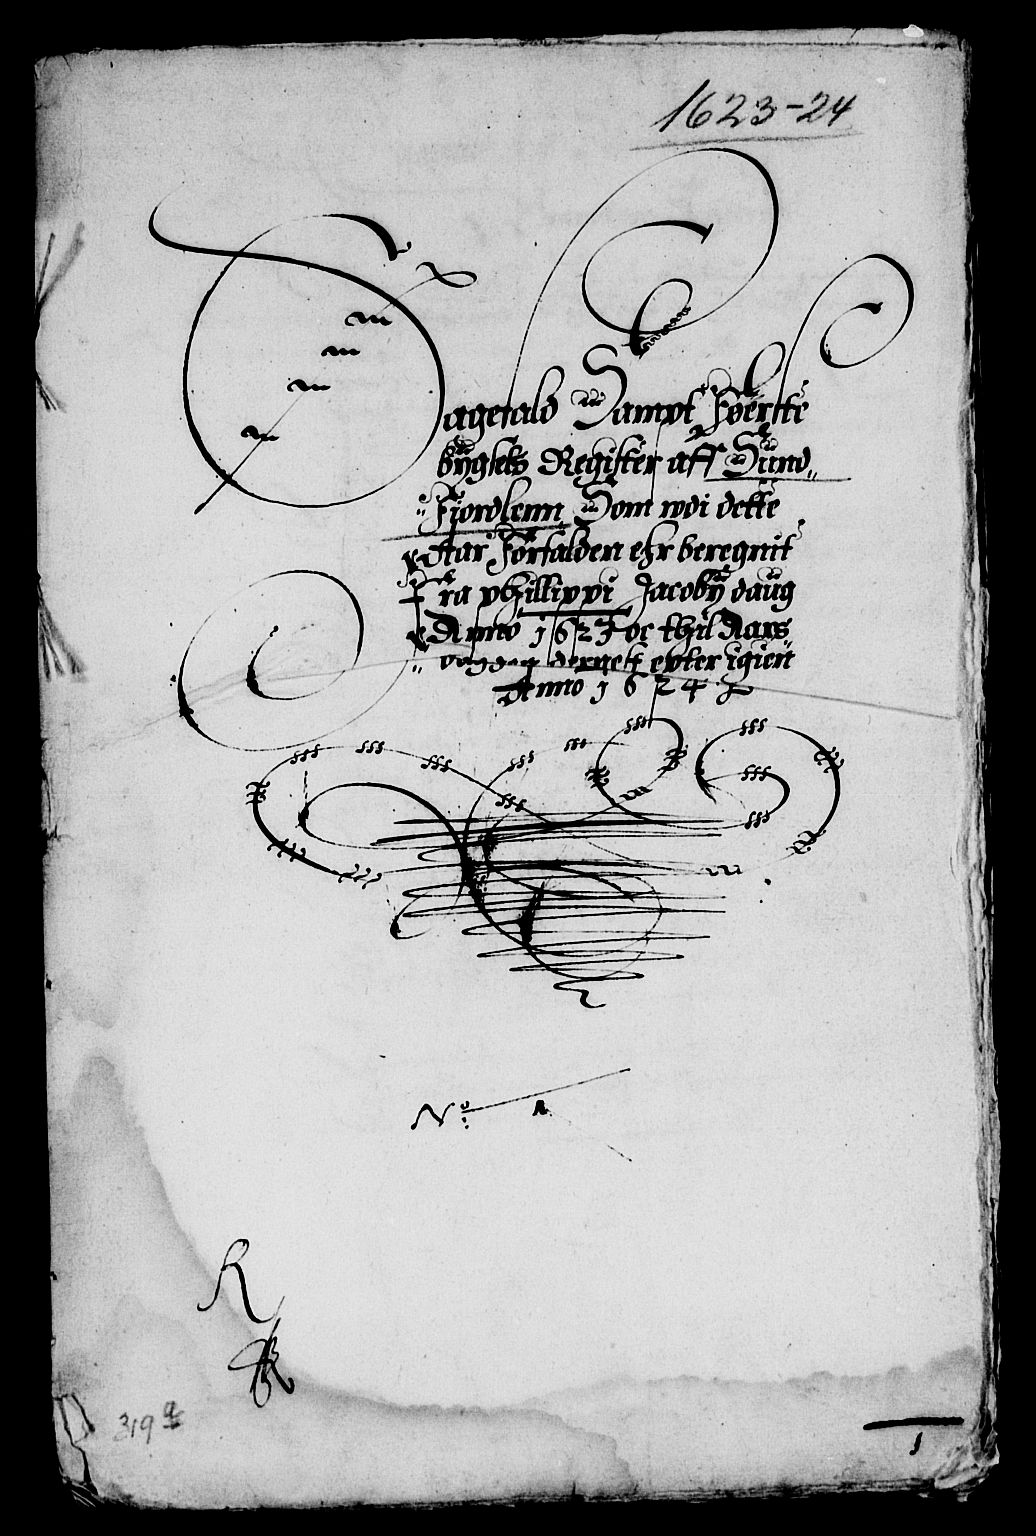 1623-24
Sagefald Sampt Føerste
bÿgsels Register aff Sünd„
Fiordlenn Som wdi dette
Aar Forfalden ehr beregnit
Fra phillippi Jacobÿ daug
Anno 1623 oc thil Aars
dagen dernest epter igien
Anno 1624
No. 1
R
319 a
1